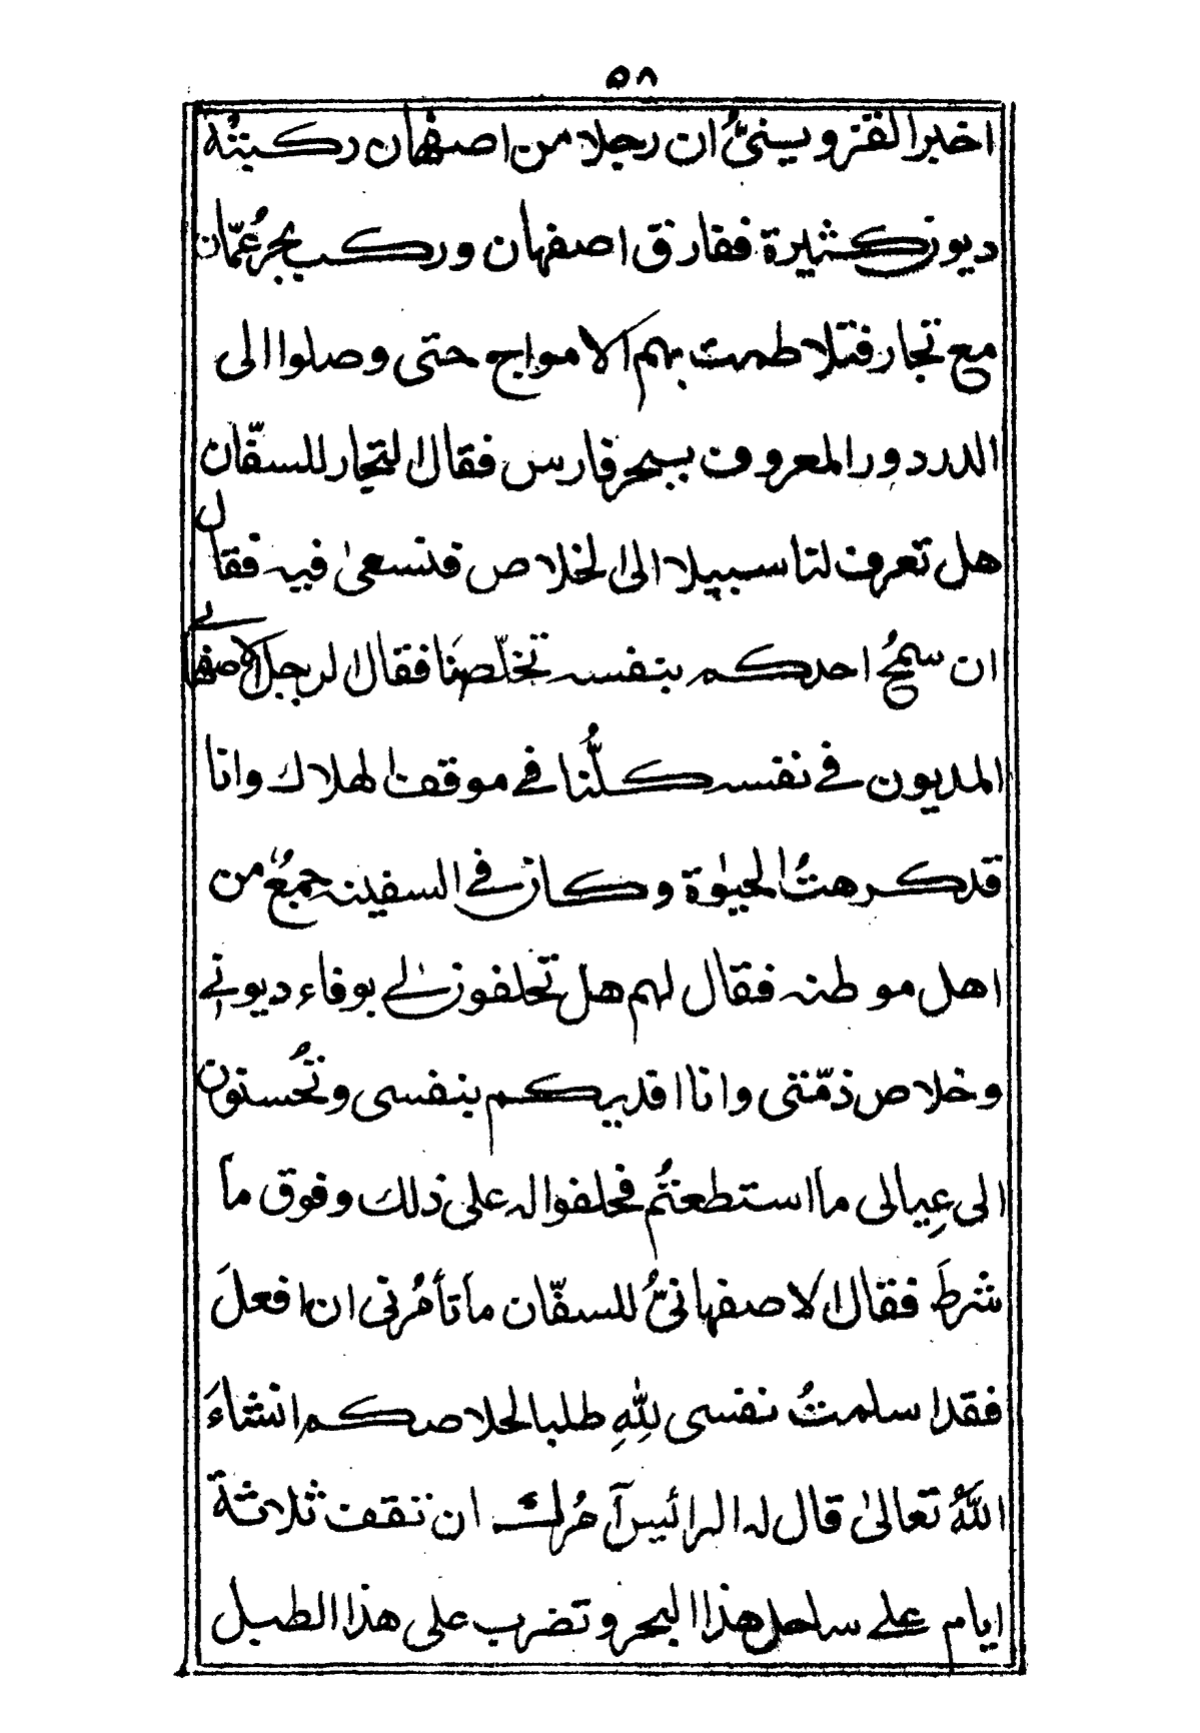 ٥٨
اخبر القزوينيُّ ان رجلا من اصفهان ركبتْه
ديون كثيرة ففارق اصفهان وركب بحر عُمّان
مع تجار فتلاطمت بهم الامواج حتى وصلوا الى
الدردور المعروف ببحر فارس فقال التجار للسفّان
هل تعرف لنا سبيلا الى الخلاص فنسعىٰ فيه فقال
ان سمحُ احدكم بنفسه تخلّصنَا فقال الرجل الاصفهانے
المديون فے نفسه كلُّنا فے موقف الهلاك وانا
قد كرهتُ الحيٰوة وكان فے السفينه جمعٌ من
اهل موطنه فقال لهم هل تحلفون لے بوفاء ديونے
وخلاص ذمّتى وانا افديكم بنفسى وتُحسنون
الى عِيالى ما استطعتُم فحلفوا له على ذلك وفوق ما
شرطَ فقال الاصفهانىُّ للسفّان ما تأمُرنى ان افعلَ
فقد اسلمتُ نفسى لِلّٰهِ طلبا لخلاصكم انشاءَ
اللّٰهُ تعالىٰ قال له الرائيس آمُرك ان تقف ثلاثة
ايام علے ساحل هذا البحر وتضرب على هذا الطبل